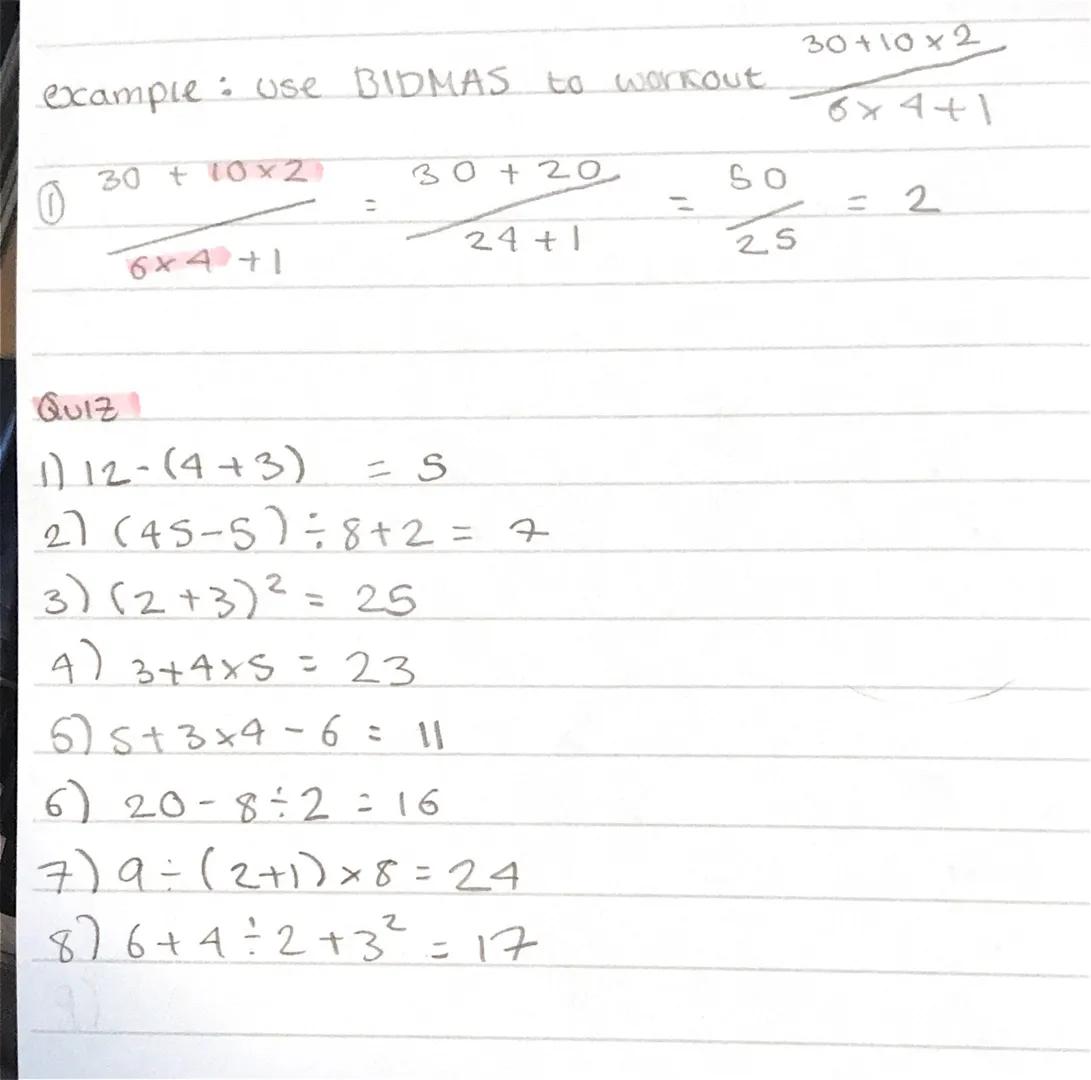 example : use BIDMAS to workout 30+10×2 / 6×4+1
① 30 + 10×2 / 6×4 +1 = 30 + 20 / 24+1 = 50 / 25 = 2
Quiz
1) 12-(4+3) = 5
2) (45-5)÷8+2 = 7
3) (2+3)² = 25
4) 3+4×5 = 23
5) 5+3×4-6 = 11
6) 20-8÷2 = 16
7) 9÷(2+1)×8=24
8) 6+4÷2+3² = 17